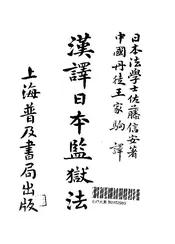 日本法學士佐藤信安著
中國丹徒王家駒譯
漢譯日本監獄法
上海普及書局出版